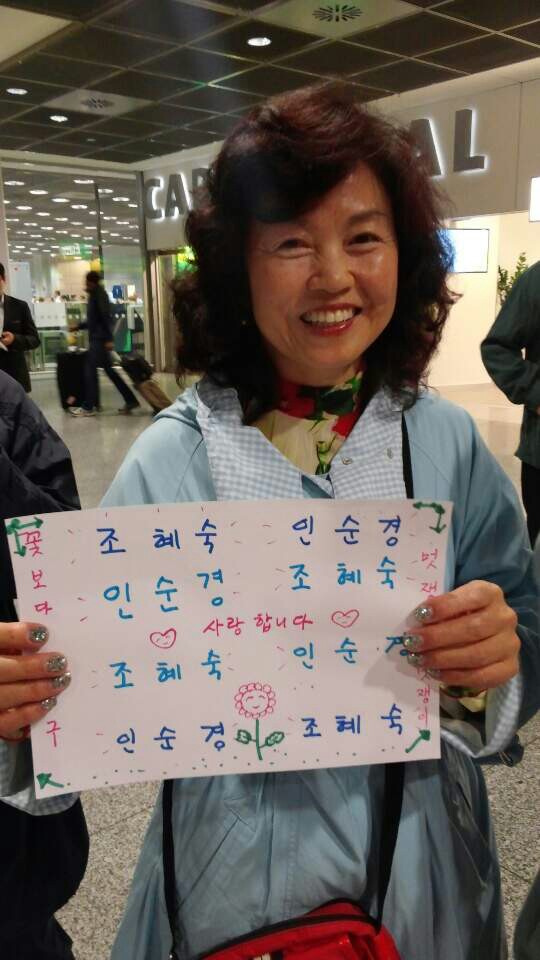 CAR
AL
조혜숙 인순경
인순경 조혜숙
사랑합니다
조혜숙 인순경
인순경 조혜숙
꽃보다
구
멋쟁
멋쟁이